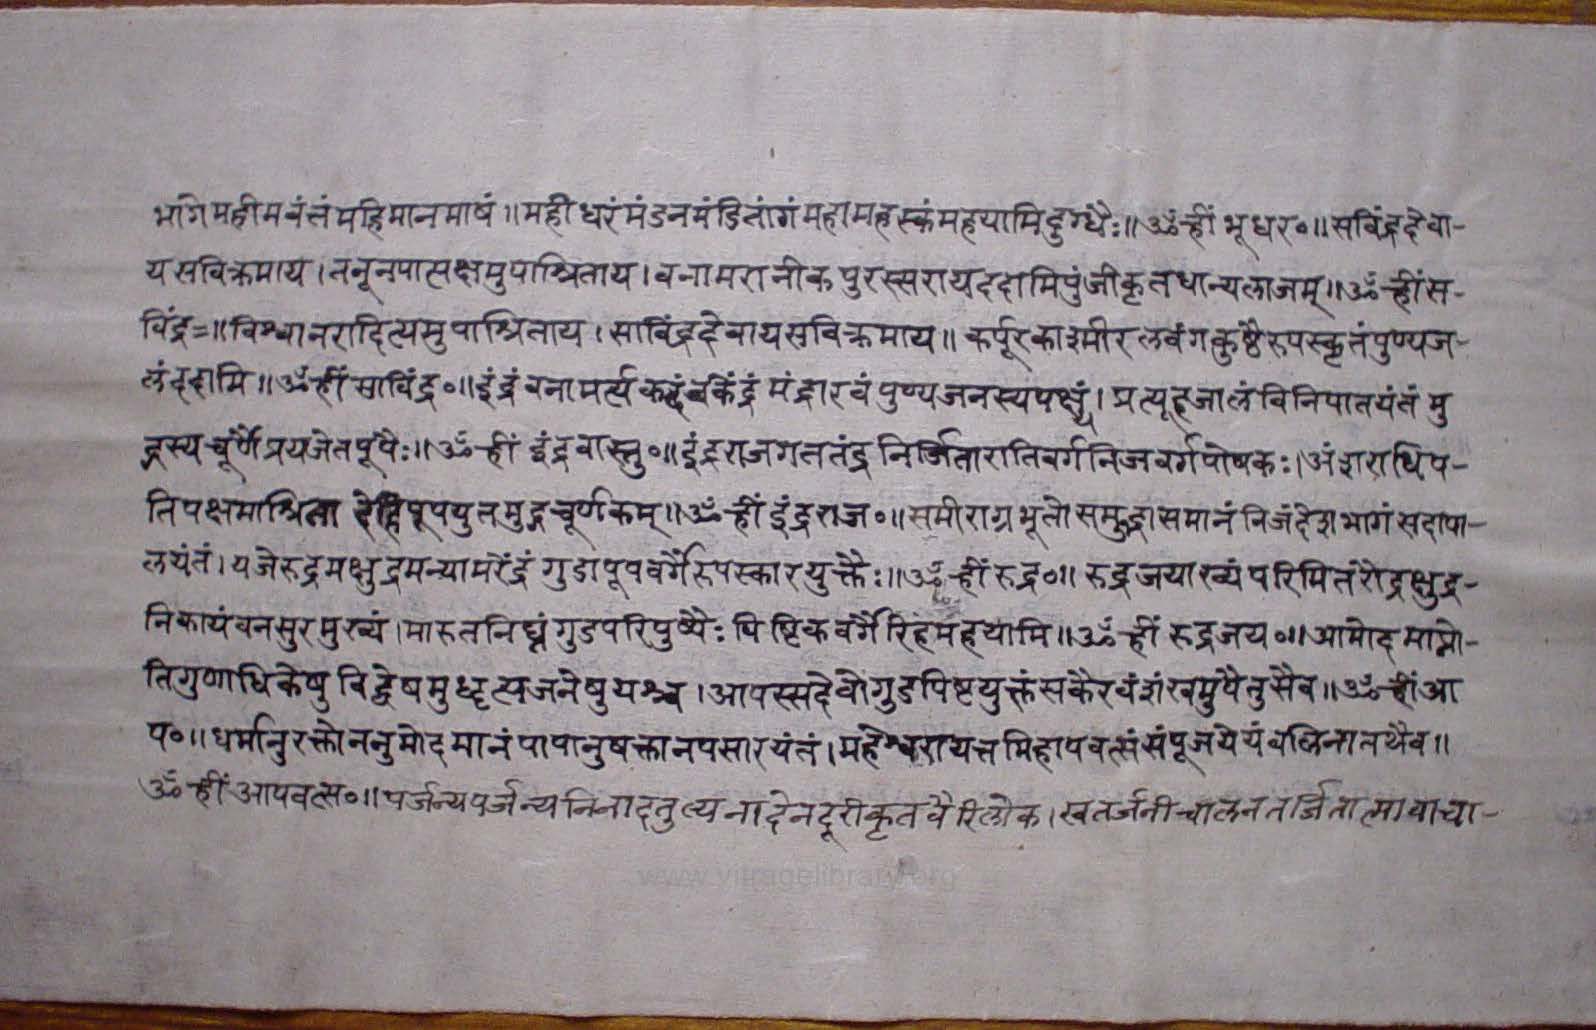 भागे महीमवंतं महिमानमाषं ॥ महीधरं मंडनमंडितांगं महामहस्कं महयामि दुग्धैः ॥ ॐ ह्रीं भूधर॰ ॥ सविंद्रदेवा-
य सविक्रमाय । तनूनपात्पक्षमुपाश्रिताय । वनामरानीकपुरस्सराय ददामि पुंजीकृतधान्यलाजम् ॥ ॐ ह्रीं स-
विंद्र॰ ॥ विश्वानरादित्यमुपाश्रिताय । साविंद्रदेवाय सविक्रमाय ॥ कर्पूरकाश्मीरलवंगकुष्ठैरुपस्कृतं पुण्यज-
लं ददामि ॥ ॐ ह्रीं साविंद्र॰ ॥ इंद्रं वनामर्त्य मंद्रारवं पुण्यजनस्य । प्रत्यूहजालं विनिपातयंतं मु
द्गस्य चूर्णैः प्रयजेतपूपैः ॥ ॐ ह्रीं इंद्रवास्तु॰ ॥ इंद्रराजगततंद्र निर्जितारातिवर्गनिजवर्गपोषकः । अंशराधिप-
तिपक्षमाश्रिता पूपयुतमुद्गचूर्णकम् ॥ ॐ ह्रीं इंद्रराज॰ ॥ समीराग्रभूतो निजं देशभागं सदापा-
लयंतं । यजे रुद्रमक्षुद्रमन्यामरेंद्रं गुडापूपवर्गैरुपस्कारयुक्तैः ॥ ॐ ह्रीं रुद्र॰ ॥ रुद्रजयाख्यं परिमितरौद्रक्षुद्र-
निकायं वनसुरमुख्यं । मारुतनिघ्नं गुडपरिपुष्यैः पिष्टिकवर्गैरिहमहयामि ॥ ॐ ह्रीं रुद्रजय॰ ॥ आमोदमाप्नो-
ति गुणाधिकेषु विद्वेषमुधृत्यजनेषु यश्च । आपस्सदेवो गुडपिष्टयुक्तं सकैरवं शंखमुपैतु सैव ॥ ॐ ह्रीं आ
प॰ ॥ धर्मानुरक्तोननुमोदमानं पापानुषक्तानपसारयंतं । महेश्वरायत्तमिहापवत्सं संपूजयेयं वलिनातथैव ॥
ॐ ह्रीं आपवत्स॰ ॥ पर्जन्यपर्जन्यनिनादतुल्यनादेनदूरीकृतवैरिलोक । स्वतर्जनीचालनतर्जितात्मावाचा-
www.vitragelibrary.org